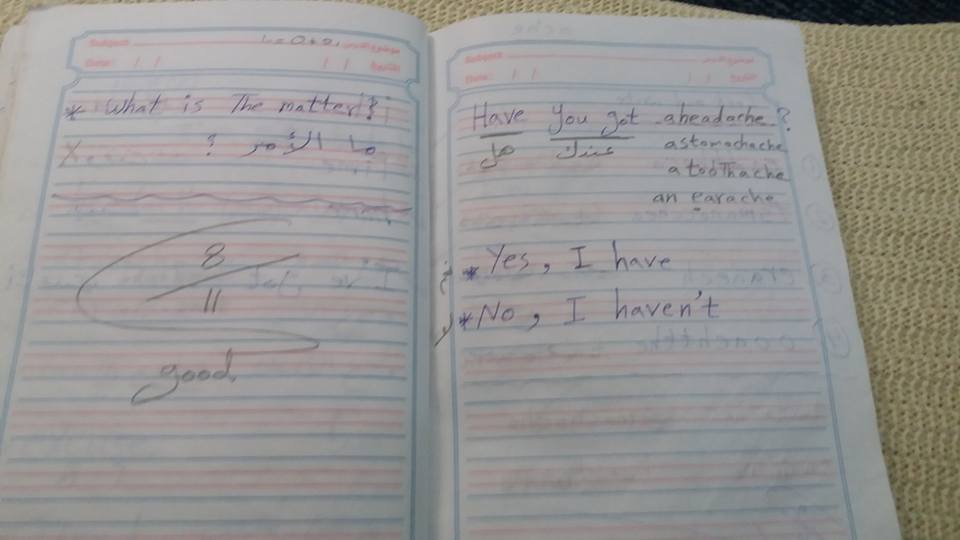 Subject
موضوع الدرس
Date: / /
/ / التاريخ
* What is The matter?
ما الأمر ؟
8
11
good
Subject
Date: / /
/ / التاريخ
Have you got aheadache ?
هل عندك astomachache
a toothache
an earache
* Yes, I have
* No, I haven't
لا